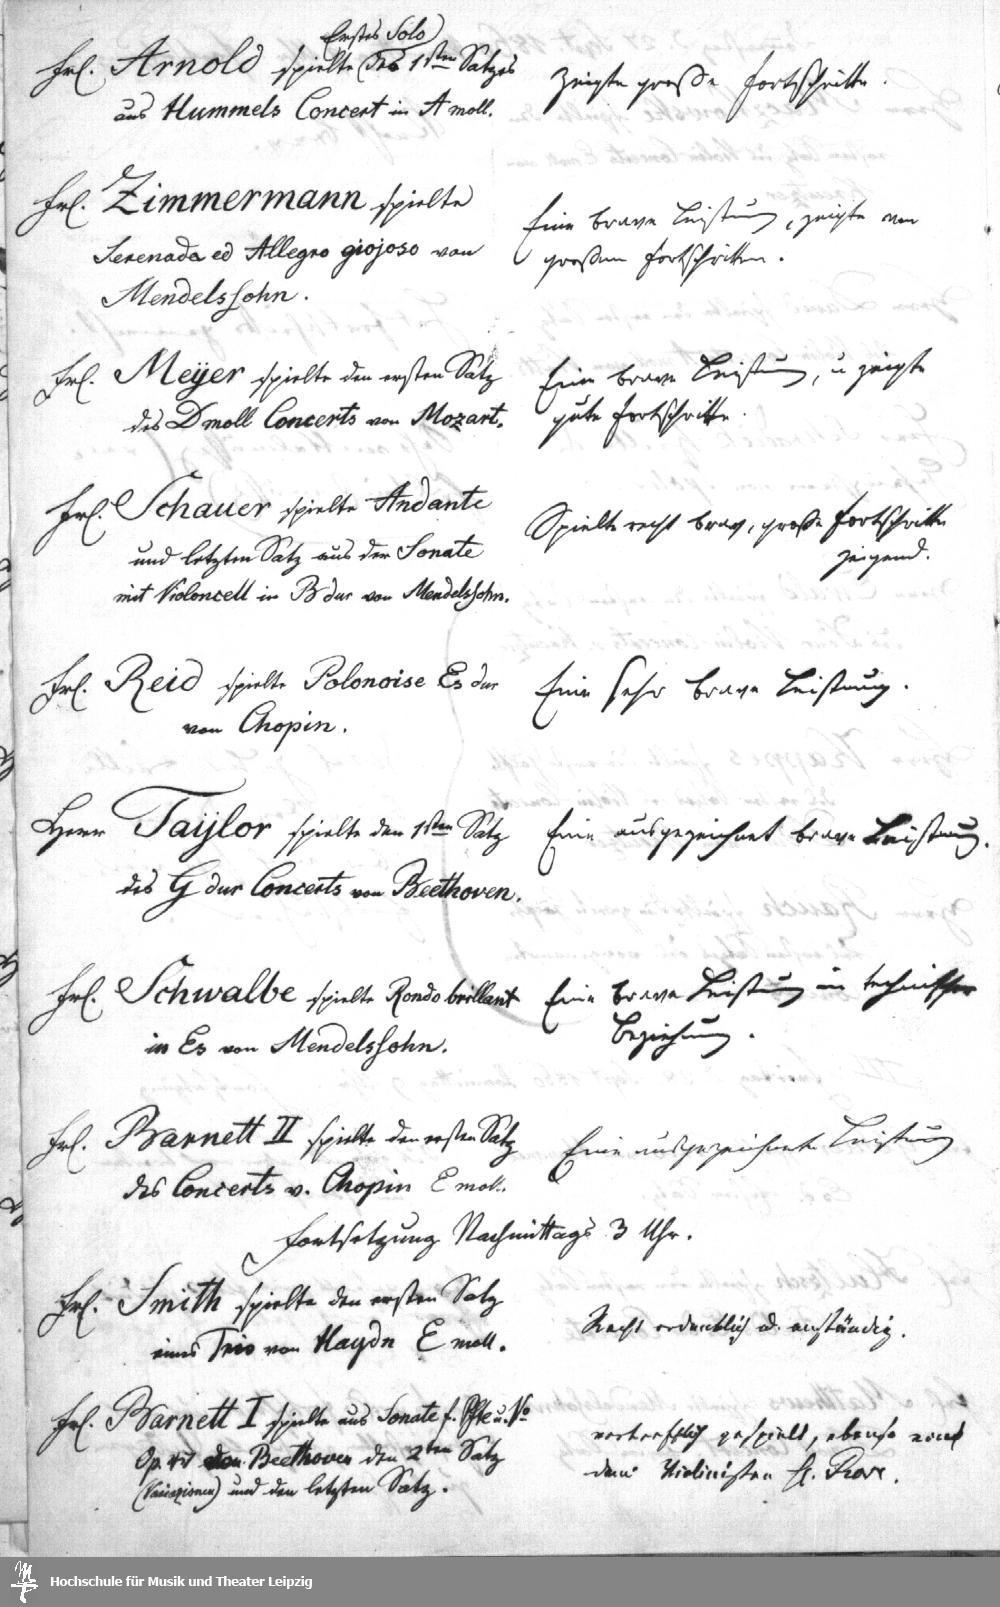 Erstes Solo
Frl. Arnold spielte des 1sten Satzes
aus Hummels Concert in A moll.
Zeigte große Fortschritte.
Frl. Zimmermann spielte
Serenada ed Allegro giojoso von
Mendelssohn.
Eine brave Leistung, zeigte von
großen Fortschritten.
Frl. Meyer spielte den ersten Satz
des D moll Concerts von Mozart.
Eine brave Leistung, u zeigte
gute Fortschritte.
Frl. Schauer spielte Andante
und letzten Satz aus der Sonate
mit Violoncell in B dur von Mendelssohn.
Spielte recht brav, große Fortschritte
zeigend.
Frl. Reid spielte Polonoise Es dur
von Chopin.
Eine sehr brave Leistung.
Herr Taylor spielte den 1sten Satz
des G dur Concerts von Beethoven.
Eine ausgezeichnet brave Leistung.
Frl. Schwalbe spielte Rondo brillant
in Es von Mendelssohn.
Eine brave Leistung in technischer
Beziehung.
Frl. Barnett II spielte den ersten Satz
des Concerts v. Chopin E moll.
Eine ausgezeichnete Leistung
Fortsetzung Nachmittags 3 Uhr.
Frl. Smith spielte den ersten Satz
eines Trio von Haydn E moll.
Recht ordentlich u. anständig.
Frl. Barnett I spielte aus Sonate f. Pfte u. Vo
Op. 47 von Beethoven den 2ten Satz
(Variazionen) und den letzten Satz.
vortrefflich gespielt, ebenso von
dem Violinisten H. Rose.
Hochschule für Musik und Theater Leipzig